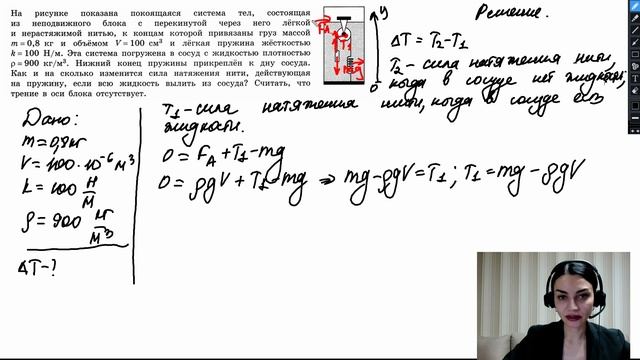 На рисунке показана покоящаяся система тел, состоящая
из неподвижного блока с перекинутой через него лёгкой
и нерастяжимой нитью, к концам которой привязаны груз массой
m = 0,8 кг и объёмом V = 100 см³ и лёгкая пружина жёсткостью
k = 100 Н/м. Эта система погружена в сосуд с жидкостью плотностью
ρ = 900 кг/м³. Нижний конец пружины прикреплён к дну сосуда.
Как и на сколько изменится сила натяжения нити, действующая
на пружину, если всю жидкость вылить из сосуда? Считать, что
трение в оси блока отсутствует.
y
0
Fₐ
T₁
mg
Решение.
ΔT = T₂ - T₁
T₂ - сила натяжения нити,
когда в сосуде нет жидкости;
T₁ - сила натяжения нити, когда в сосуде есть
жидкость.
0 = Fₐ + T₁ - mg
0 = ρgV + T₁ - mg ⇒ mg - ρgV = T₁ ; T₁ = mg - ρgV
Дано:
m = 0,8 кг
V = 100 · 10⁻⁶ м³
k = 100 Н/м
ρ = 900 кг/м³
ΔT - ?